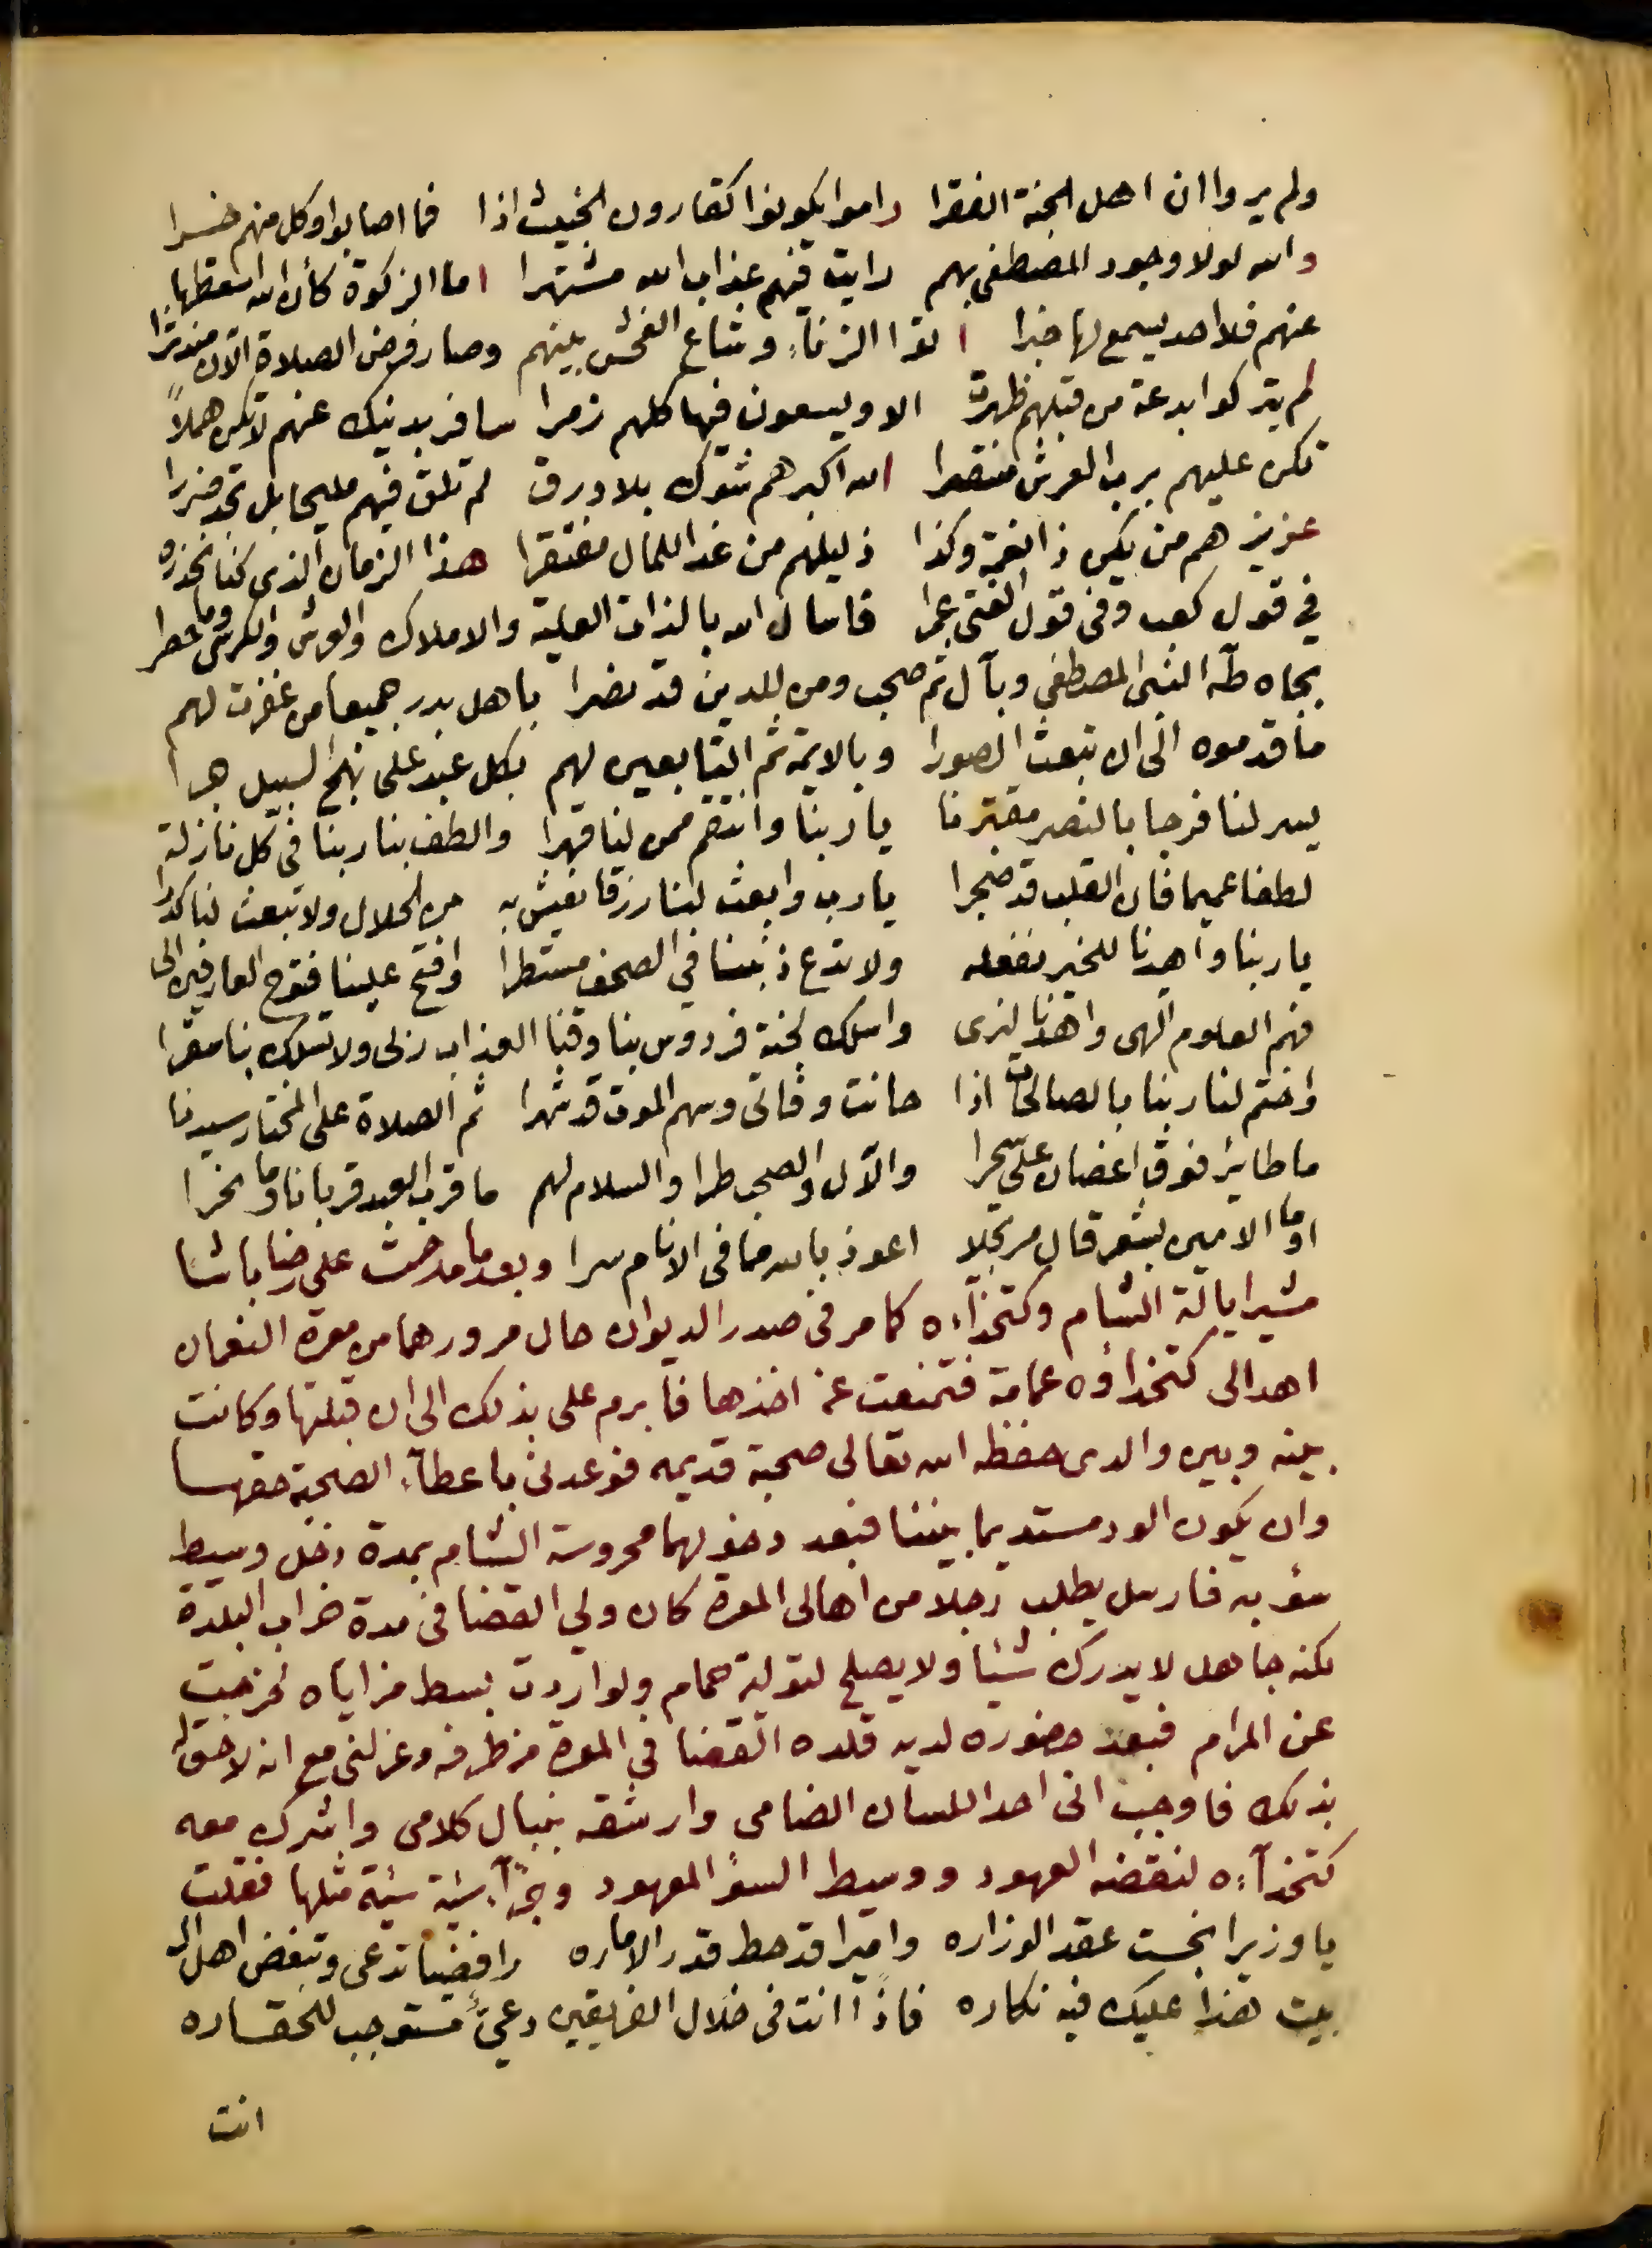 ولم يروا ان اهل الجنة الفقرا راموا يكونوا كقارون الخبيث اذا فما اصابوا وكل منهم خسرا
والله لولا وجود المصطفى بهم رايت فيهم عذاب الله مشتهرا اما الزكوة كأن الله اسقطها
عنهم فلا احد يسمع لها خبرا اتوا الزناء وشاع الفحش بينهم وصار فرض الصلاة الآن مندثرا
لم يتركوا بدعة من قبلهم ظهرت الا ويسعون فيها كلهم زمرا سافر بدينك عنهم لا تكن هملاً
تكن عليهم برب العرش منتصرا الله اكبر هم شوك بلا ورق لم تلق فيهم مليحا بل تجد ضررا
عزيزهم من يكن ذا نعمة وكذا ذليلهم من غدا للمال مفتقرا هذا الزمان الذي كنا نحذره
في قول كعب وفي قول الفتى عمرا فاسال الله بالذات العلية والاملاك والعرش والكرسى وما سطرا
بجاه طه النبى المصطفى وبآل ثم صحب ومن للدين قد نصرا باهل بدر جميعا من غفرت لهم
ما قدموه الى ان تبعث الصورا وبالايمة ثم التابعين لهم بكل عبد على نهج السبيل جرا
يسر لنا فرجا بالنصر مقترنا يا ربنا وانتقم ممن لنا قهرا والطف بنا ربنا في كل نازلة
لطفا عميما فان القلب قد ضجرا يا رب وابعث لنا رزقا نعيش به من الحلال ولا تبعث لنا كدرا
يا ربنا واهدنا للخير نفعله ولا تدع ذنبنا في الصحف مستطرا وافتح علينا فتوح العارفين الى
فهم العلوم الهى واهدنا لنرى واسلك لجنة فردوس بنا وقنا العذاب ربى ولا تسلك بنا سقرا
واختم لنا ربنا بالصالحات اذا حانت وفاتى وسهم الموت قد شهرا ثم الصلاة على المختار سيدنا
ما طاير فوق اغصان على سحرا والآل والصحب طرا والسلام لهم ما قرب العبد قربانا وما نحرا
او ما الامين بشعر قال مرتجلا اعوذ بالله مما في الانام سرا وبعد ما مدحت على رضا باشا
مشير ايالة الشام وكتخذآءه كما مر في صدر الديوان حال مرورهما من معرة النعمان
اهدا الى كتخذاؤه عمامة فتمنعت عن اخذها فابرم على بذلك الى ان قبلتها وكانت
بينه وبين والدى حفظه الله تعالى صحبة قديمه فوعدنى باعطآء الصحبة حقها
وان يكون الود مستديما بيننا فبعد دخولهما محروسة الشام بمدة دخل وسيط
سؤ به فارسل يطلب رجلا من اهالى المعرة كان ولي القضا في مدة خراب البلدة
لكنه جاهل لا يدرك شيئا ولا يصلح لتولية حمام ولو اردت بسط مزاياه لخرجت
عن المرام فبعد حضوره لديه قلده القضا في المعرة من طرفه وعزلنى مع انه لا حق له
بذلك فاوجب انى احد اللسان الضامى وارشقه بنبال كلامى واشرك معه
كتخذآءه لنقضه العهود ووسيط السؤ المعهود وجزآء سيئة سيئة مثلها فقلت
يا وزيرا نجست عقد الوزاره واميرا قد حط قدر الاماره رافضيا تدعى وتبغض اهل ال
بيت هذا عليك فيه نكاره فاذًا انت في ضلال الفريقين دعىٌّ مستوجب للحقاره
انت